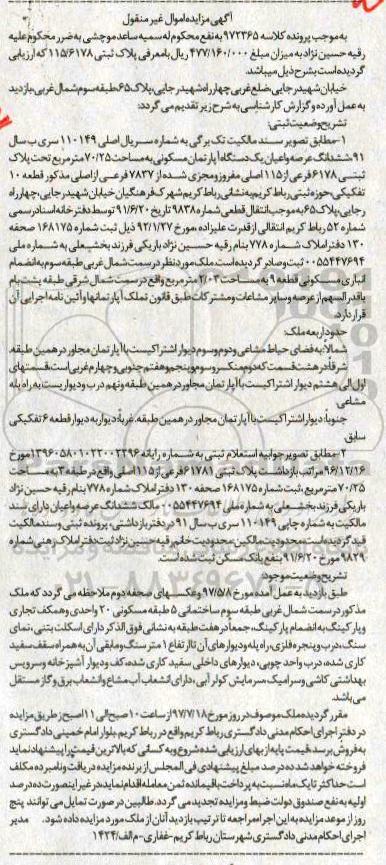 آگهی مزایده اموال غیر منقول
به موجب پرونده کلاسه ۹۷۲۳۶۵ به نفع محکوم له سمیه ساعدموچشی به ضرر محکوم علیه
رقیه حسین نژاد به میزان مبلغ ۴۷۷/۱۶۰/۰۰۰ ریال با معرفی پلاک ثبتی ۱۱۵/۶۱۷۸ که ارزیابی
گردیده است بشرح ذیل میباشد.
خیابان شهید رجایی ضلع غربی چهارراه شهید رجایی پلاک ۶۵ طبقه سوم شمال غربی بازدید
به عمل آورده و گزارش کارشناسی به شرح زیر تقدیم می گردد:
تشریح وضعیت ثبتی:
۱- مطابق تصویر سند مالکیت تک برگی به شماره سریال اصلی ۱۱۰۱۴۹ سری ب سال
۹۱ ششدانگ عرصه واعیان یک دستگاه آپارتمان مسکونی به مساحت ۷۰/۲۵ متر مربع تحت پلاک
ثبتی ۶۱۷۸ فرعی از ۱۱۵ اصلی مفروز ومجزی شده از ۷۸۳۷ فرعی از اصلی مذکور قطعه ۱۰
تفکیکی حوزه ثبتی رباط کریم به نشانی رباط کریم شهرک فرهنگیان خیابان شهید رجایی، چهارراه
رجایی، پلاک ۶۵ به موجب انتقال قطعی شماره ۹۸۳۸ تاریخ ۹۱/۶/۲۰ توسط دفترخانه اسناد رسمی
شماره ۵۲ رباط کریم انتقالی از قدرت علیزاده مورخ ۹۲/۱/۲۷ ذیل ثبت شماره ۱۶۸۱۷۵ صفحه
۱۳۰ دفتر املاک شماره ۷۷۸ بنام رقیه حسین نژاد باریکی فرزند بخشعلی به شماره ملی
۰۰۵۵۴۴۷۶۹۴ ثبت وصادر گردیده است.ملک مورد نظر در سمت شمال غربی طبقه سوم به انضمام
انباری مسکونی قطعه ۹ به مساحت ۲/۰۳ متر مربع واقع در سمت شمال شرقی طبقه پشت بام
باقدرالسهم از عرصه وسایر مشاعات ومشترکات طبق قانون تملک آپارتمانها وآئین نامه اجرایی آن
قرار دارد.
حدود اربعه ملک:
شمالاً: به فضای حیاط مشاعی و دوم وسوم دیوار اشتراکیست با آپارتمان مجاور در همین طبقه.
شرقاً: در هشت قسمت که دوم منکسر وسوم وپنجم وهفتم جنوبی وچهارم غربی است، قسمتهای
اول الی هشتم دیوار اشتراکیست با آپارتمان مجاور در همین طبقه ونهم درب ودیواریست به راه پله
مشاعی
جنوباً: دیوار اشتراکیست با آپارتمان مجاور در همین طبقه. غرباً: دیوار به دیوار قطعه ۶ تفکیکی
سابق.
۲- مطابق تصویر جوابیه استعلام ثبتی به شماره رایانه ۱۳۹۶۰۵۸۰۱۰۲۲۰۰۲۳۹۶ مورخ
۹۶/۱۲/۱۶ مراتب بازداشت پلاک ثبتی ۶۱۷۸ فرعی از ۱۱۵ اصلی واقع در طبقه ۳ به مساحت
۷۰/۲۵ متر مربع، ثبت شماره ۱۶۸۱۷۵ صفحه ۱۳۰ دفتر املاک شماره ۷۷۸ بنام رقیه حسین نژاد
باریکی فرزند بخشعلی به شماره ملی ۰۰۵۵۴۴۷۶۹۴، مالک ششدانگ عرصه واعیان دارای سند
مالکیت به شماره چاپی ۱۱۰۱۴۹ سری ب سال ۹۱ در دفتر بازداشتی، پرونده ثبتی و سند مالکیت
قید گردیده است.محدودیت مالکین:محدودیت خانم رقیه حسین نژاد ثبت دفتر املاک رهنی شماره
۹۸۳۹ مورخ ۹۱/۶/۲۰ بنفع بانک مسکن ثبت شده است.
تشریح وضعیت موجود:
طبق بازدید به عمل آمده مورخ ۹۷/۵/۸ و عکسهای صفحه دوم ملاحظه می گردد که ملک
مذکور در سمت شمال غربی طبقه سوم ساختمانی ۵ طبقه مسکونی ۲۰ واحدی وهمکف تجاری
وپارکینگ به انضمام پارکینگ، جمعاً در هفت طبقه به نشانی فوق الذکر دارای اسکلت بتنی، نمای
سنگ، درب وپنجره فلزی، راه پله و دیوارهای آن تا ارتفاع ۱ متر سنگ ومابقی آن به همراه سقف سفید
کاری شده، درب واحد چوبی، دیوارهای داخلی سفید کاری شده، کف ودیوار آشپزخانه وسرویس
بهداشتی کاشی وسرامیک سرمایش کولر آبی، دارای انشعاب آب مشاع وانشعاب برق وگاز مستقل
می باشد.
مقرر گردیده ملک موصوف در روز مورخ ۹۷/۷/۱۸ از ساعت ۱۰ صبح الی ۱۱ صبح از طریق مزایده
در دفتر اجرای احکام مدنی دادگستری رباط کریم واقع در رباط کریم بلوار امام خمینی دادگستری
به فروش برسد قیمت پایه از بهای ارزیابی شده شروع وبه کسانی که بالاترین قیمت را پیشنهاد نماید
فروخته خواهد شد ده درصد مبلغ پیشنهادی فی المجلس از برنده مزایده دریافت ونامبرده مکلف
است حداکثر تا یک ماه نسبت به پرداخت باقیمانده ثمن معامله اقدام نماید در غیر اینصورت ده درصد
اولیه به نفع صندوق دولت ضبط ومزایده تجدید می گردد. طالبین در صورت تمایل می توانند پنج
روز از موعد مزایده به این اجرا مراجعه تا ترتیب بازدید آنان از ملک مورد مزایده داده شود. مدیر
اجرای احکام مدنی دادگستری شهرستان رباط کریم-غفاری-م الف/۱۴۲۴